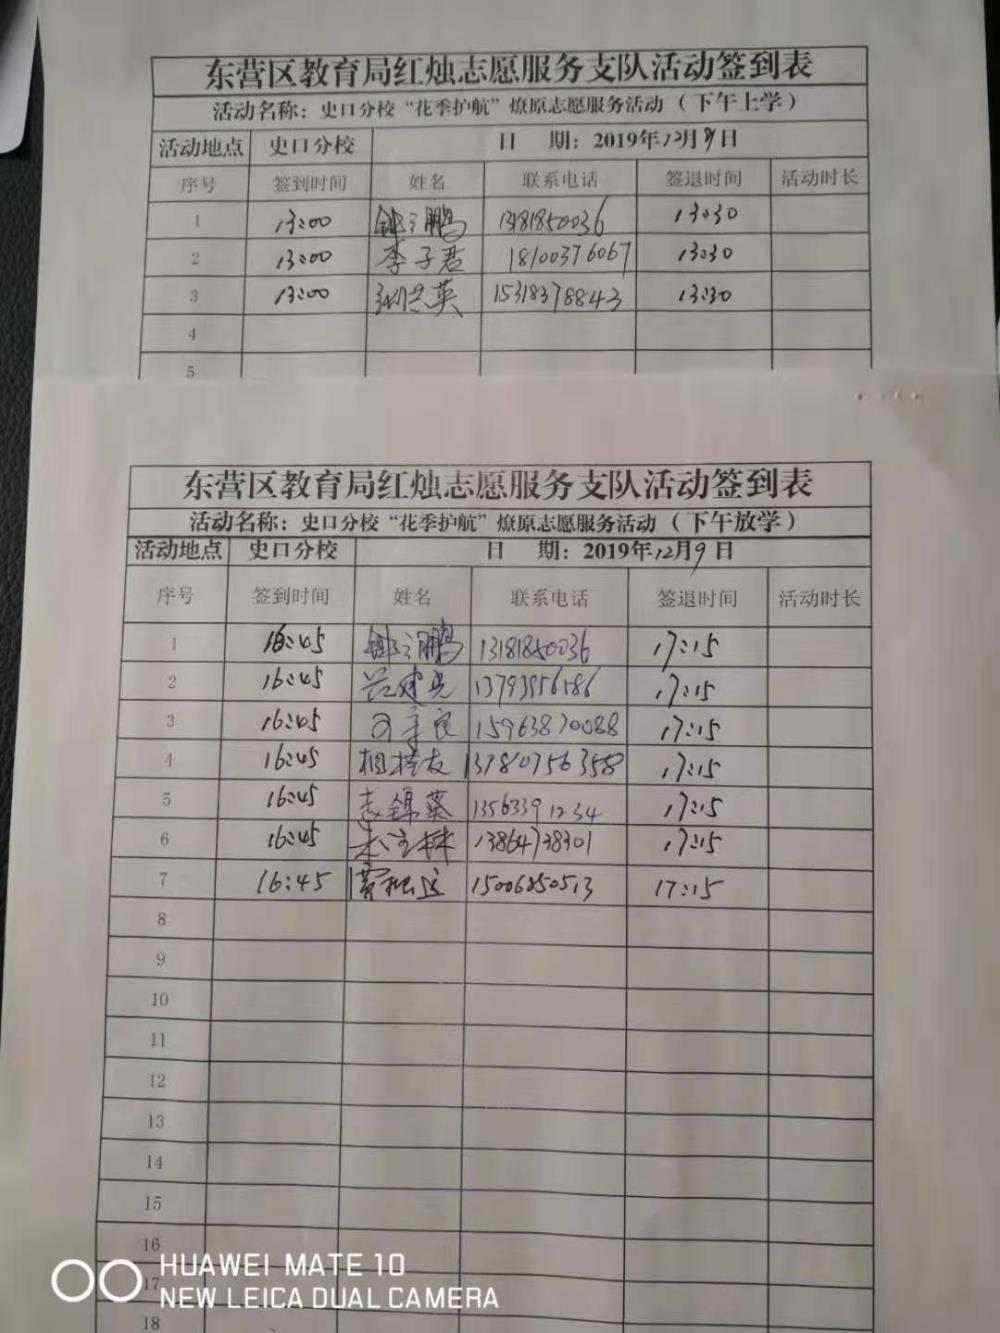 东营区教育局红烛志愿服务支队活动签到表
活动名称：史口分校“花季护航”燎原志愿服务活动（下午上学）
活动地点 史口分校 日 期：2019年12月9日
序号 签到时间 姓名 联系电话 签退时间 活动时长
1 13:00 鹏 13181850036 13:30
2 13:00 李子君 18100376067 13:30
3 13:00 英 15318378843 13:30
4
5
东营区教育局红烛志愿服务支队活动签到表
活动名称：史口分校“花季护航”燎原志愿服务活动（下午放学）
活动地点 史口分校 日 期：2019年12月9日
序号 签到时间 姓名 联系电话 签退时间 活动时长
1 16:45 鹏 13181850036 17:15
2 16:45 17:15
3 16:45 15963870088 17:15
4 16:45 17:15
5 16:45 李锦葵 13563391234 17:15
6 16:45 13864738301 17:15
7 16:45 15006850513 17:15
8
9
10
11
12
13
14
15
16
17
18
HUAWEI MATE 10
NEW LEICA DUAL CAMERA